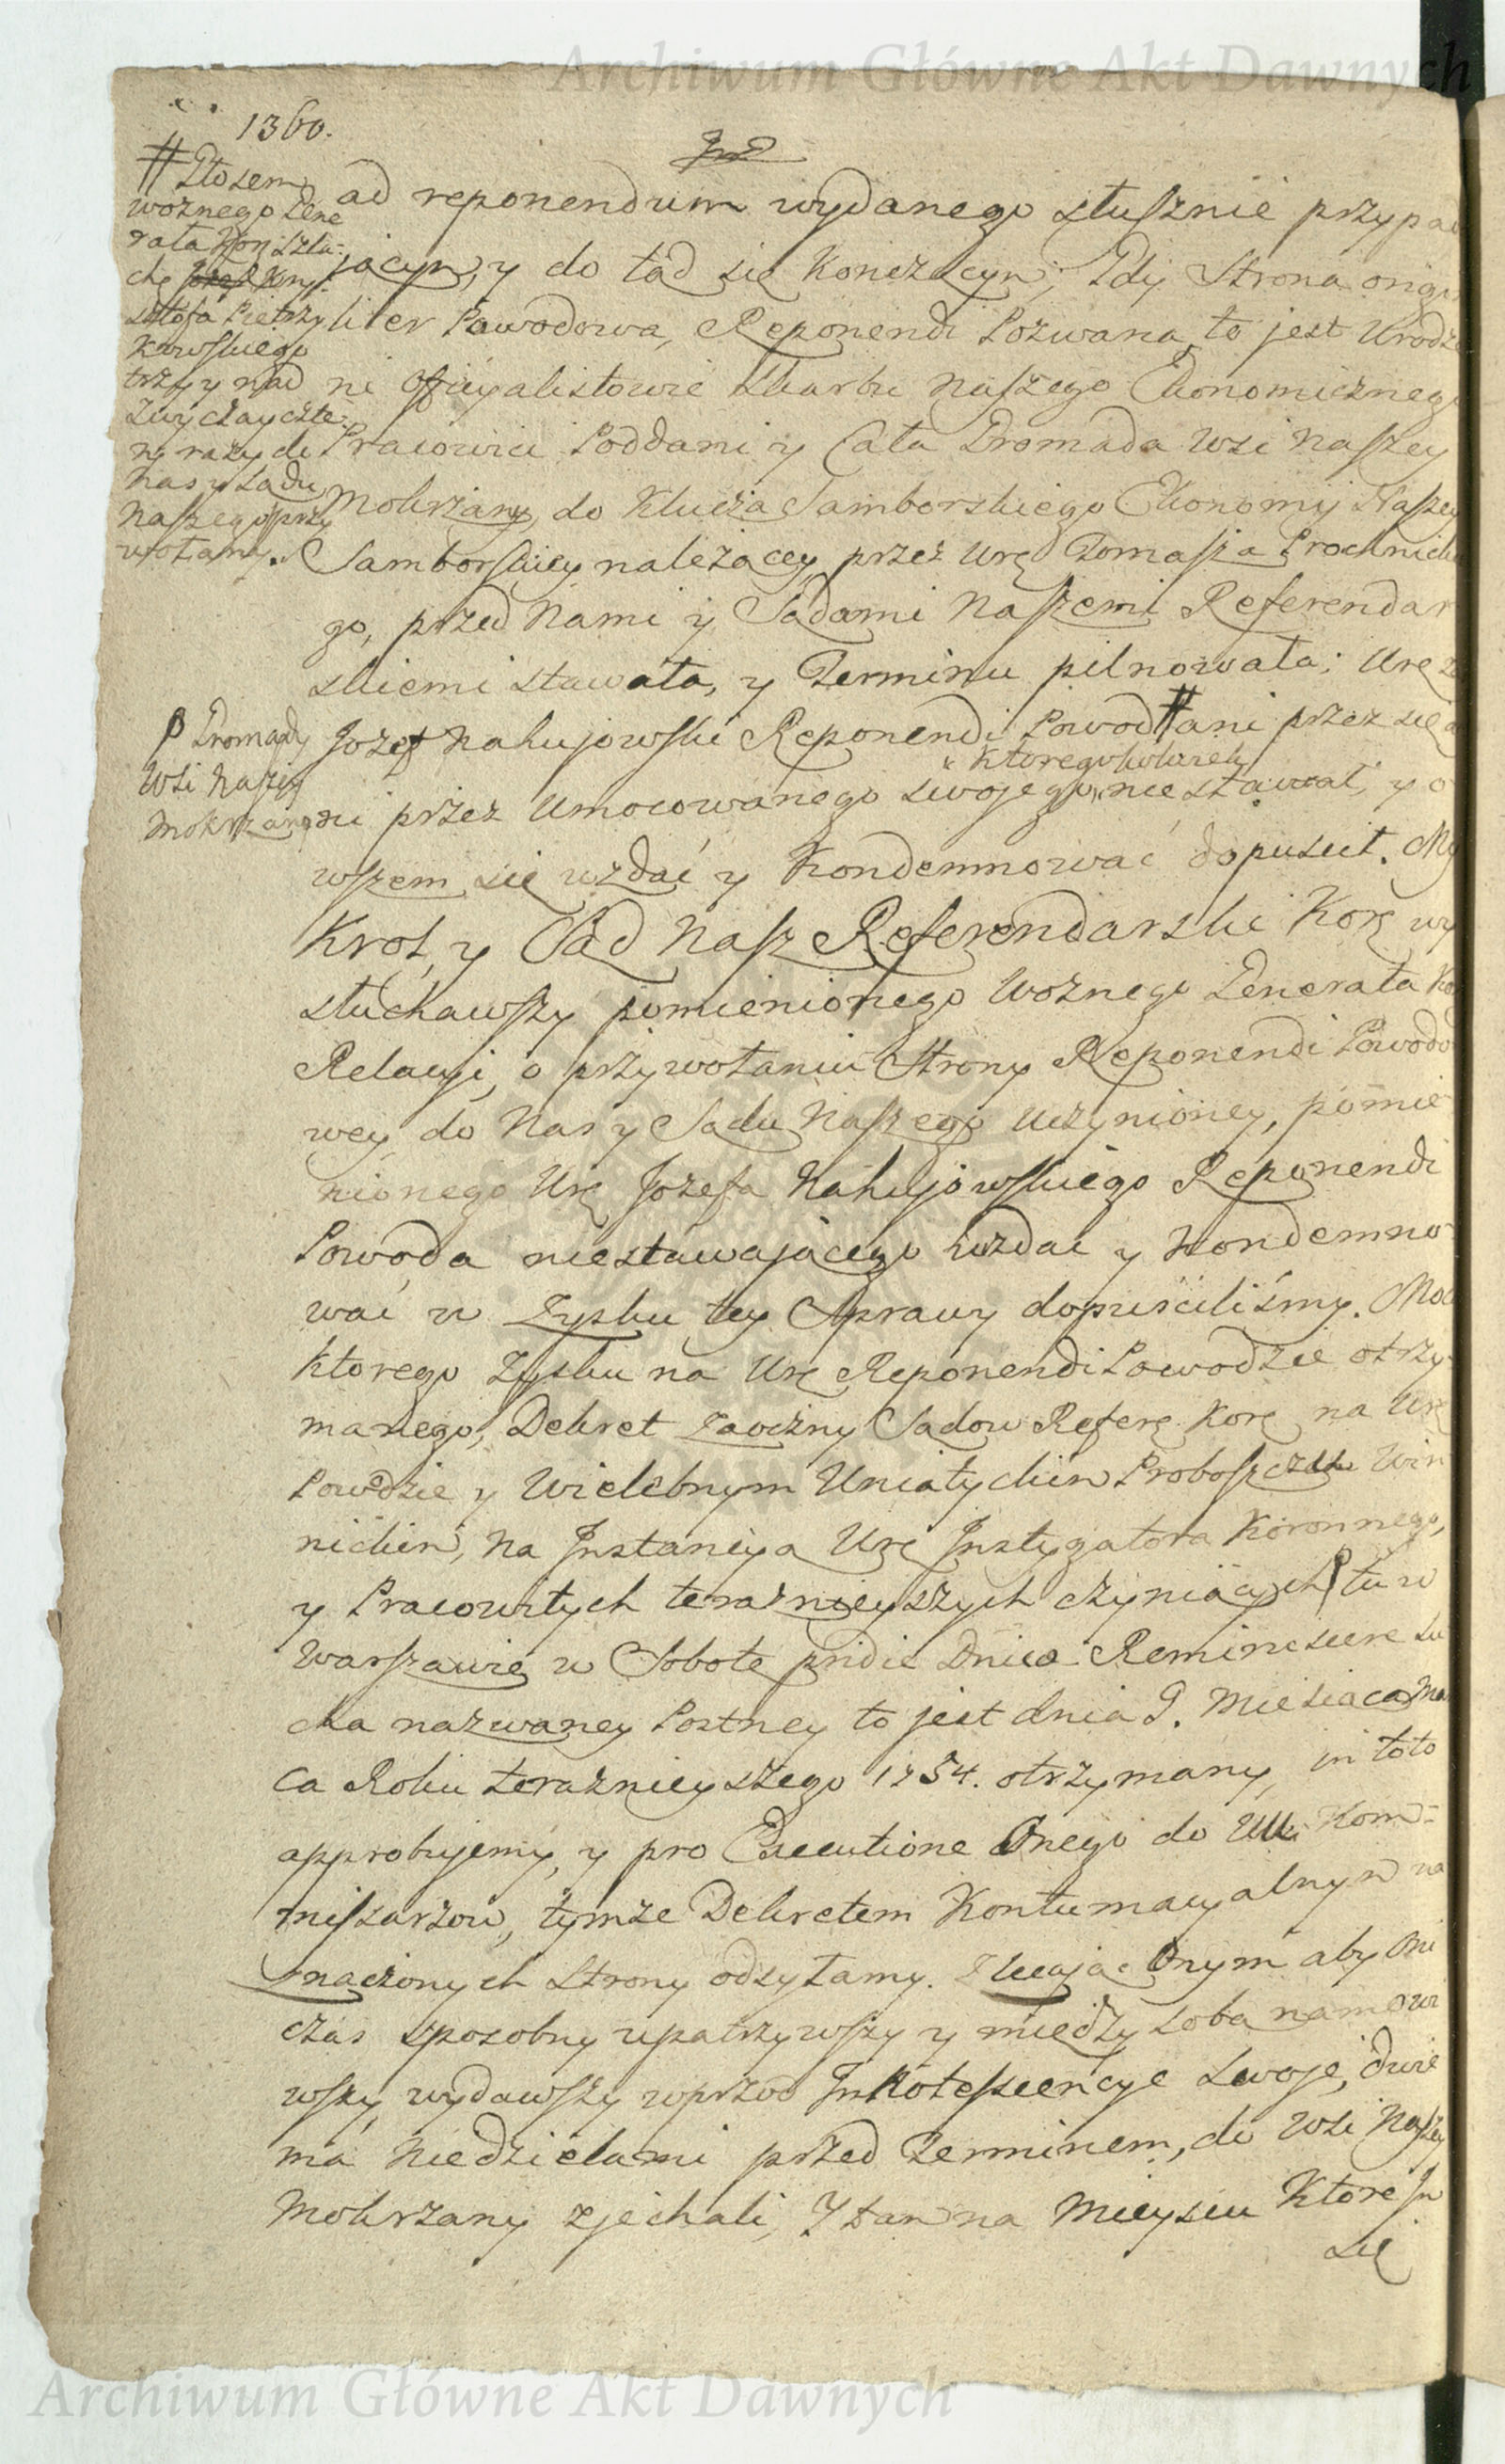 Archiwum Główne Akt Dawnych
1360.
# Głosem
woznego Gene
rała Kor: szla:
che Józef Krzy:
sztofa Pietrzy
kowskiego
trzy y nad
zwyczay czte:
ry razy do
Nas y Sądu
Naszego przy
wołany.
ad reponendum wydanego słusznie przypad
jącym, y do tąd się konczącym; Gdy Strona origin
liter Powodowa, Reponendi Pozwana, to jest Urodze
ni Officyalistowie Skarbu Naszego Ekonomicznego
Pracowici Poddani y Cała Gromada Wsi Naszey
Mokrzany, do Klucza Samborskiego Ekonomij Naszey
Samborskiey należącey przez Urę Tomasza Prochnick
go, przed Nami y Sądami Naszemi Referendar
skiemi stawała, y Terminu pilnowała; Urę za
Jozef Nahujowski Reponendi Powod # ani przez się a
ktoregokolwiek
ni przez Umocowanego swojego, nie stawał, y o
β Gromady
Wsi Naszey
Mokrzany
wszem się wzdać y Kondemnować dopuscił. My
Krol, y Sąd Nasz Referendarski Korę wy
słuchawszy pomienionego Woznego Generała Kor
Relacyi, o przywołaniu Strony Reponendi Powodo
wey do Nas y Sądu Naszego uczynioney, pomie
nionego Urę Jozefa Nahujowskiego Reponendi
Powoda niestawającego wzdać y Kondemno
wać w Zysku tey Sprawy dopuściliśmy. Moc
ktorego Zysku na Urę Reponendi Powodzie otrzy
manego, Dekret zaoczny Sądow Referę Korę na Urę
Powodzie y Wielebnym Uniatyckim Proboszczu Win
nickim, na Instancyą Urę Instygatora Koronnego,
y Pracowitych teraznieyszych czyniących β tu w
Warszawie w Sobotę pridie Dnicae Reminiscere su
cha nazwaney Postney to jest dnia 9. Miesiąca Mar
ca Roku teraznieyszego 1754. otrzymany, in toto
approbujemy, y pro Executione Onego do UU. Kom=
missarzow, tymze Dekretem Kontumacyalnym na
znaczonych Strony odsyłamy. Zlecając Onym aby Oni
czas sposobny upatrzywszy y między sobą namowi
wszy, wydawszy wprzod Innotescencye swoje, dwie
ma Niedzielami przed Terminem, do Wsi Naszey
Mokrzany zjechali, Y tam na Mieyscu Ktore Ju
się
Archiwum Główne Akt Dawnych